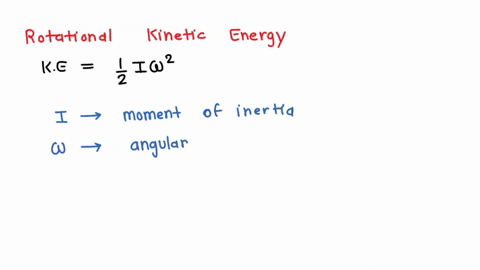 Rotational Kinetic Energy
K.E = 1/2 Iω²
I → moment of inertia
ω → angular